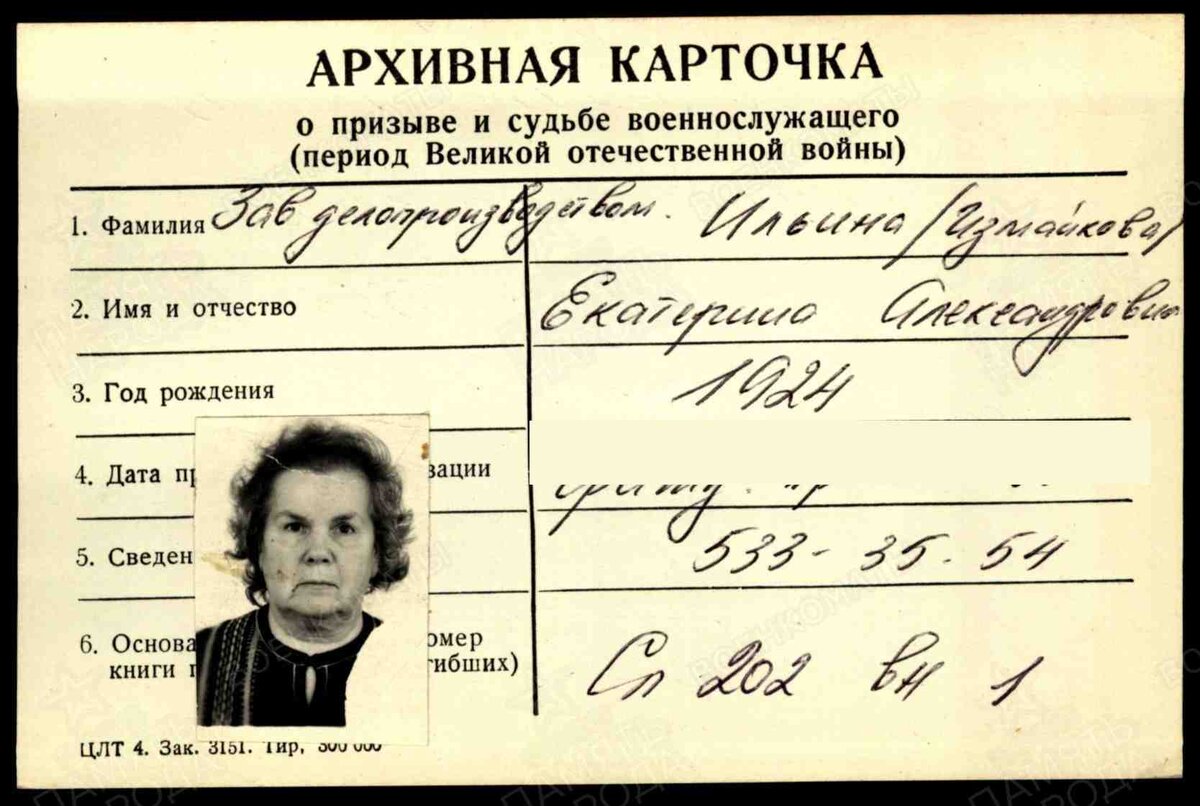 АРХИВНАЯ КАРТОЧКА
о призыве и судьбе военнослужащего
(период Великой отечественной войны)
1. Фамилия Зав делопроизводством. Ильина /Измайкова/
2. Имя и отчество Екатерина Александровна
3. Год рождения 1924
4. Дата пр зации
5. Сведен 533-35-54
6. Основа омер
книги п гибших) Сп 202 вн 1
ЦЛТ 4. Зак. 3151. Тир, 300 000